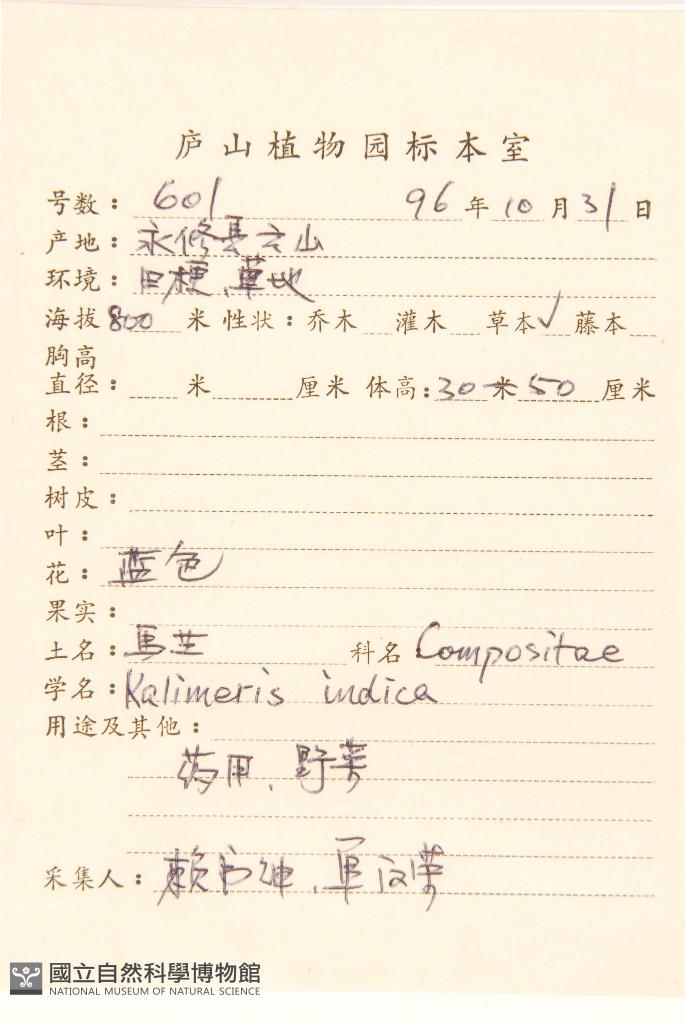 庐山植物园标本室
号数： 601 96 年 10 月 31 日
产地： 永修县云山
环境： 田梗、草地
海拔 800 米 性状：乔木 灌木 草本 ✓ 藤本
胸高
直径： 米 厘米 体高：30 米 50 厘米
根：
茎：
树皮：
叶：
花： 蓝色
果实：
土名： 马兰 科名：Compositae
学名： Kalimeris indica
用途及其他：
药用、野菜
采集人： 赖书绅、单汉荣
國立自然科學博物館
NATIONAL MUSEUM OF NATURAL SCIENCE